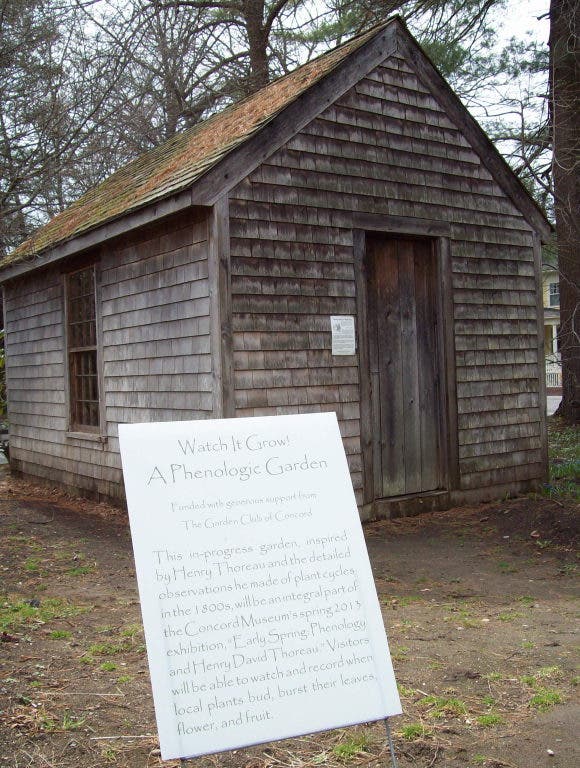 Watch It Grow!
A Phenologic Garden
Funded with generous support from
The Garden Club of Concord
This in-progress garden, inspired
by Henry Thoreau and the detailed
observations he made of plant cycles
in the 1800s, will be an integral part of
the Concord Museum's spring 2013
exhibition, "Early Spring: Phenology
and Henry David Thoreau." Visitors
will be able to watch and record when
local plants bud, burst their leaves,
flower, and fruit.